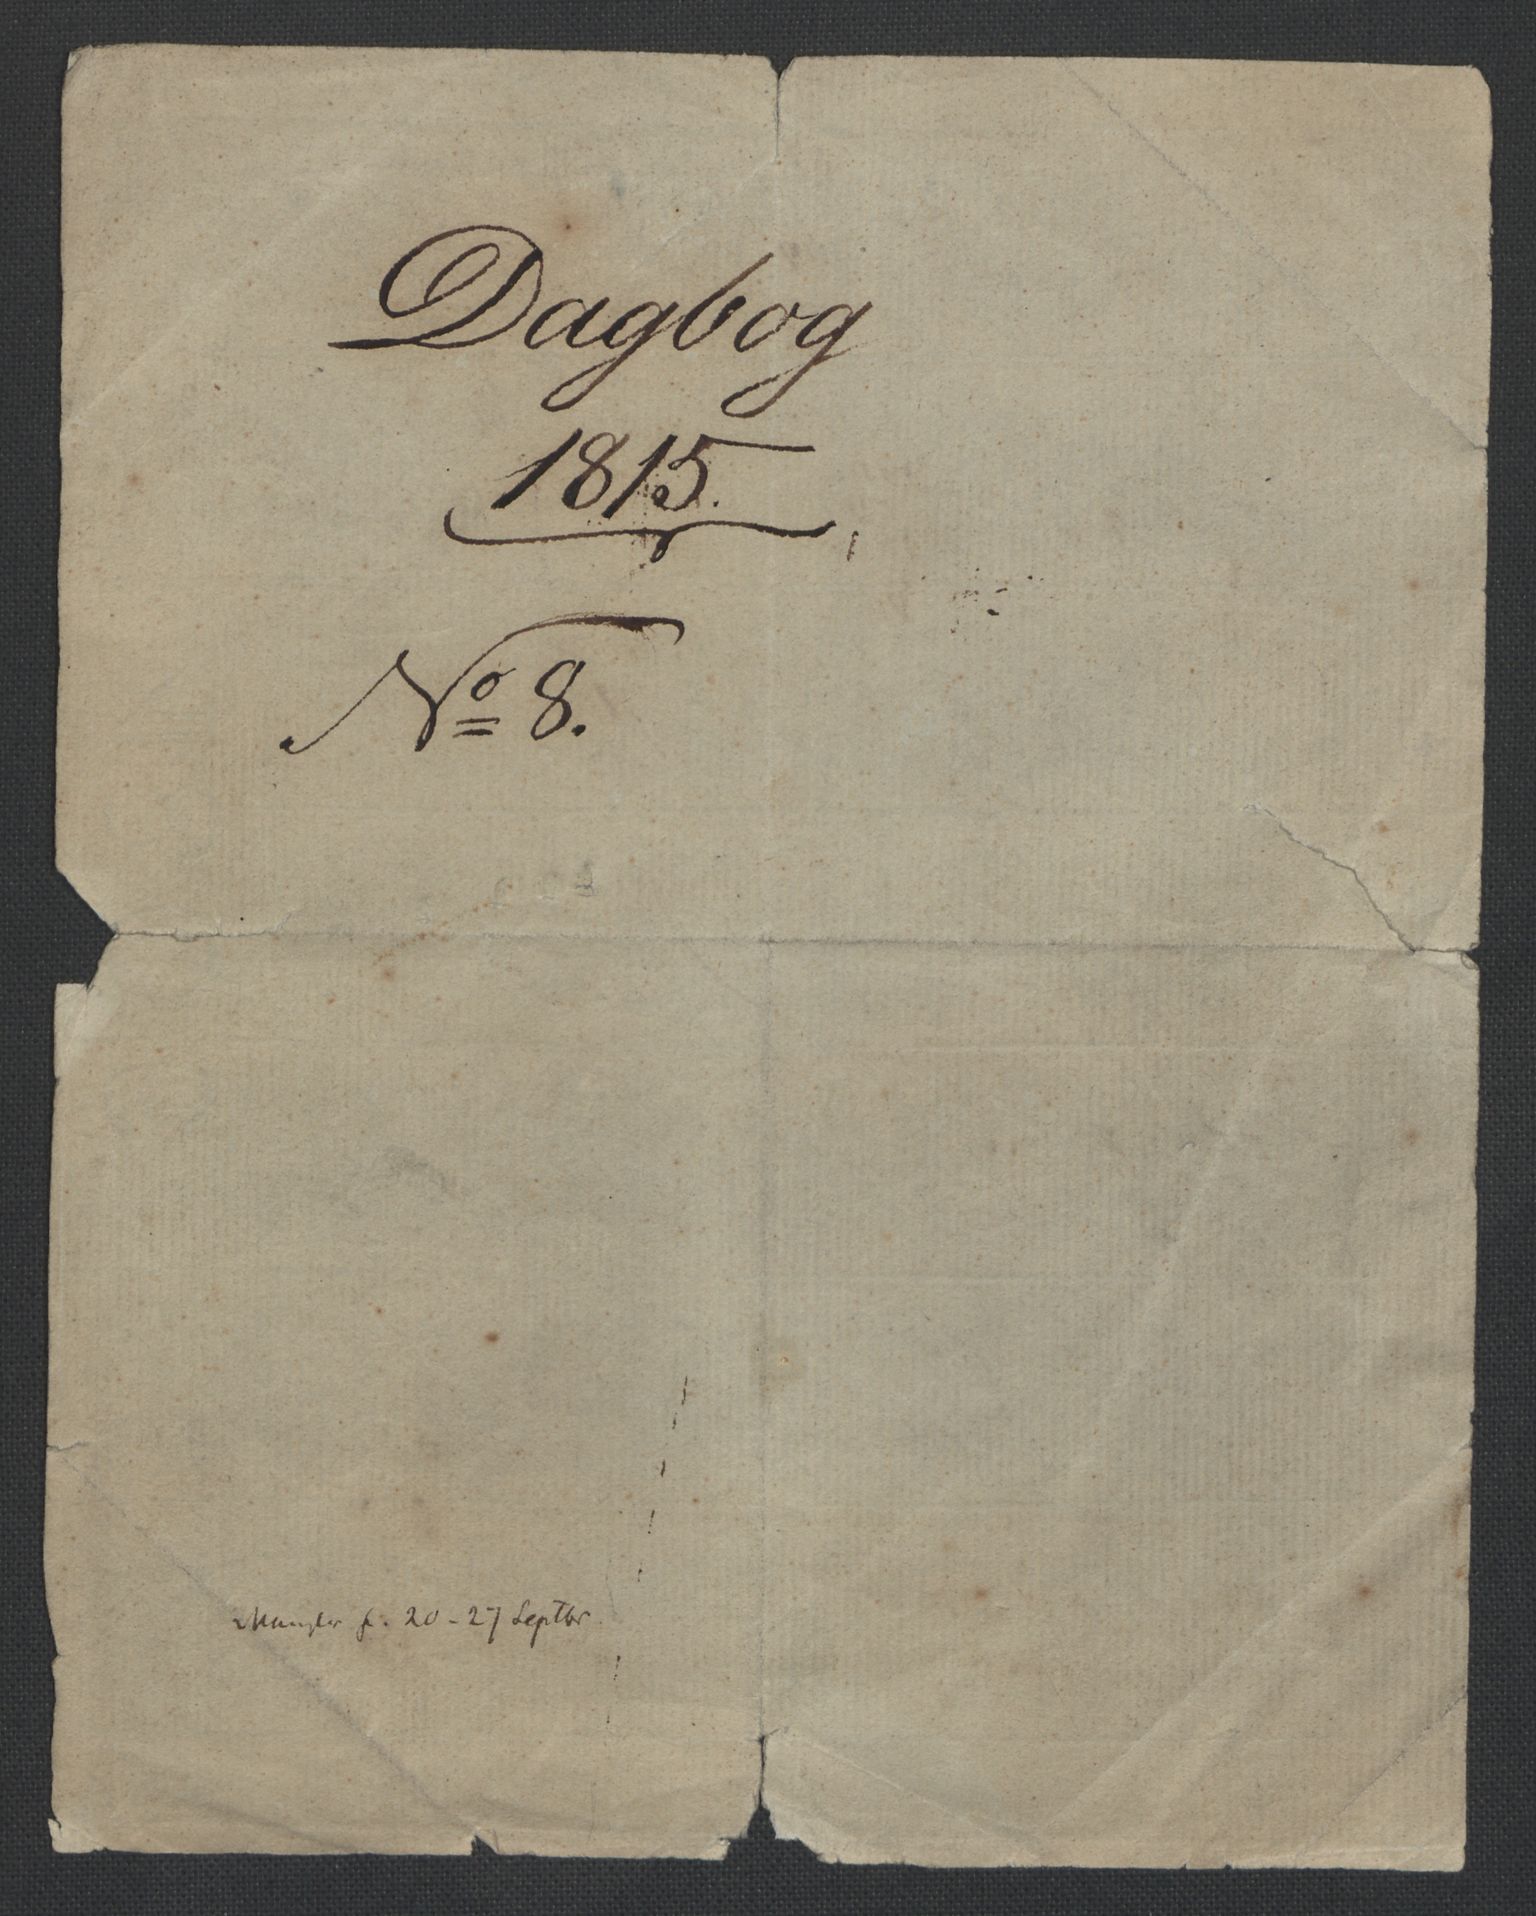 Dagbog
1815.
No 8.
Mangler f. 20-27 Septbr